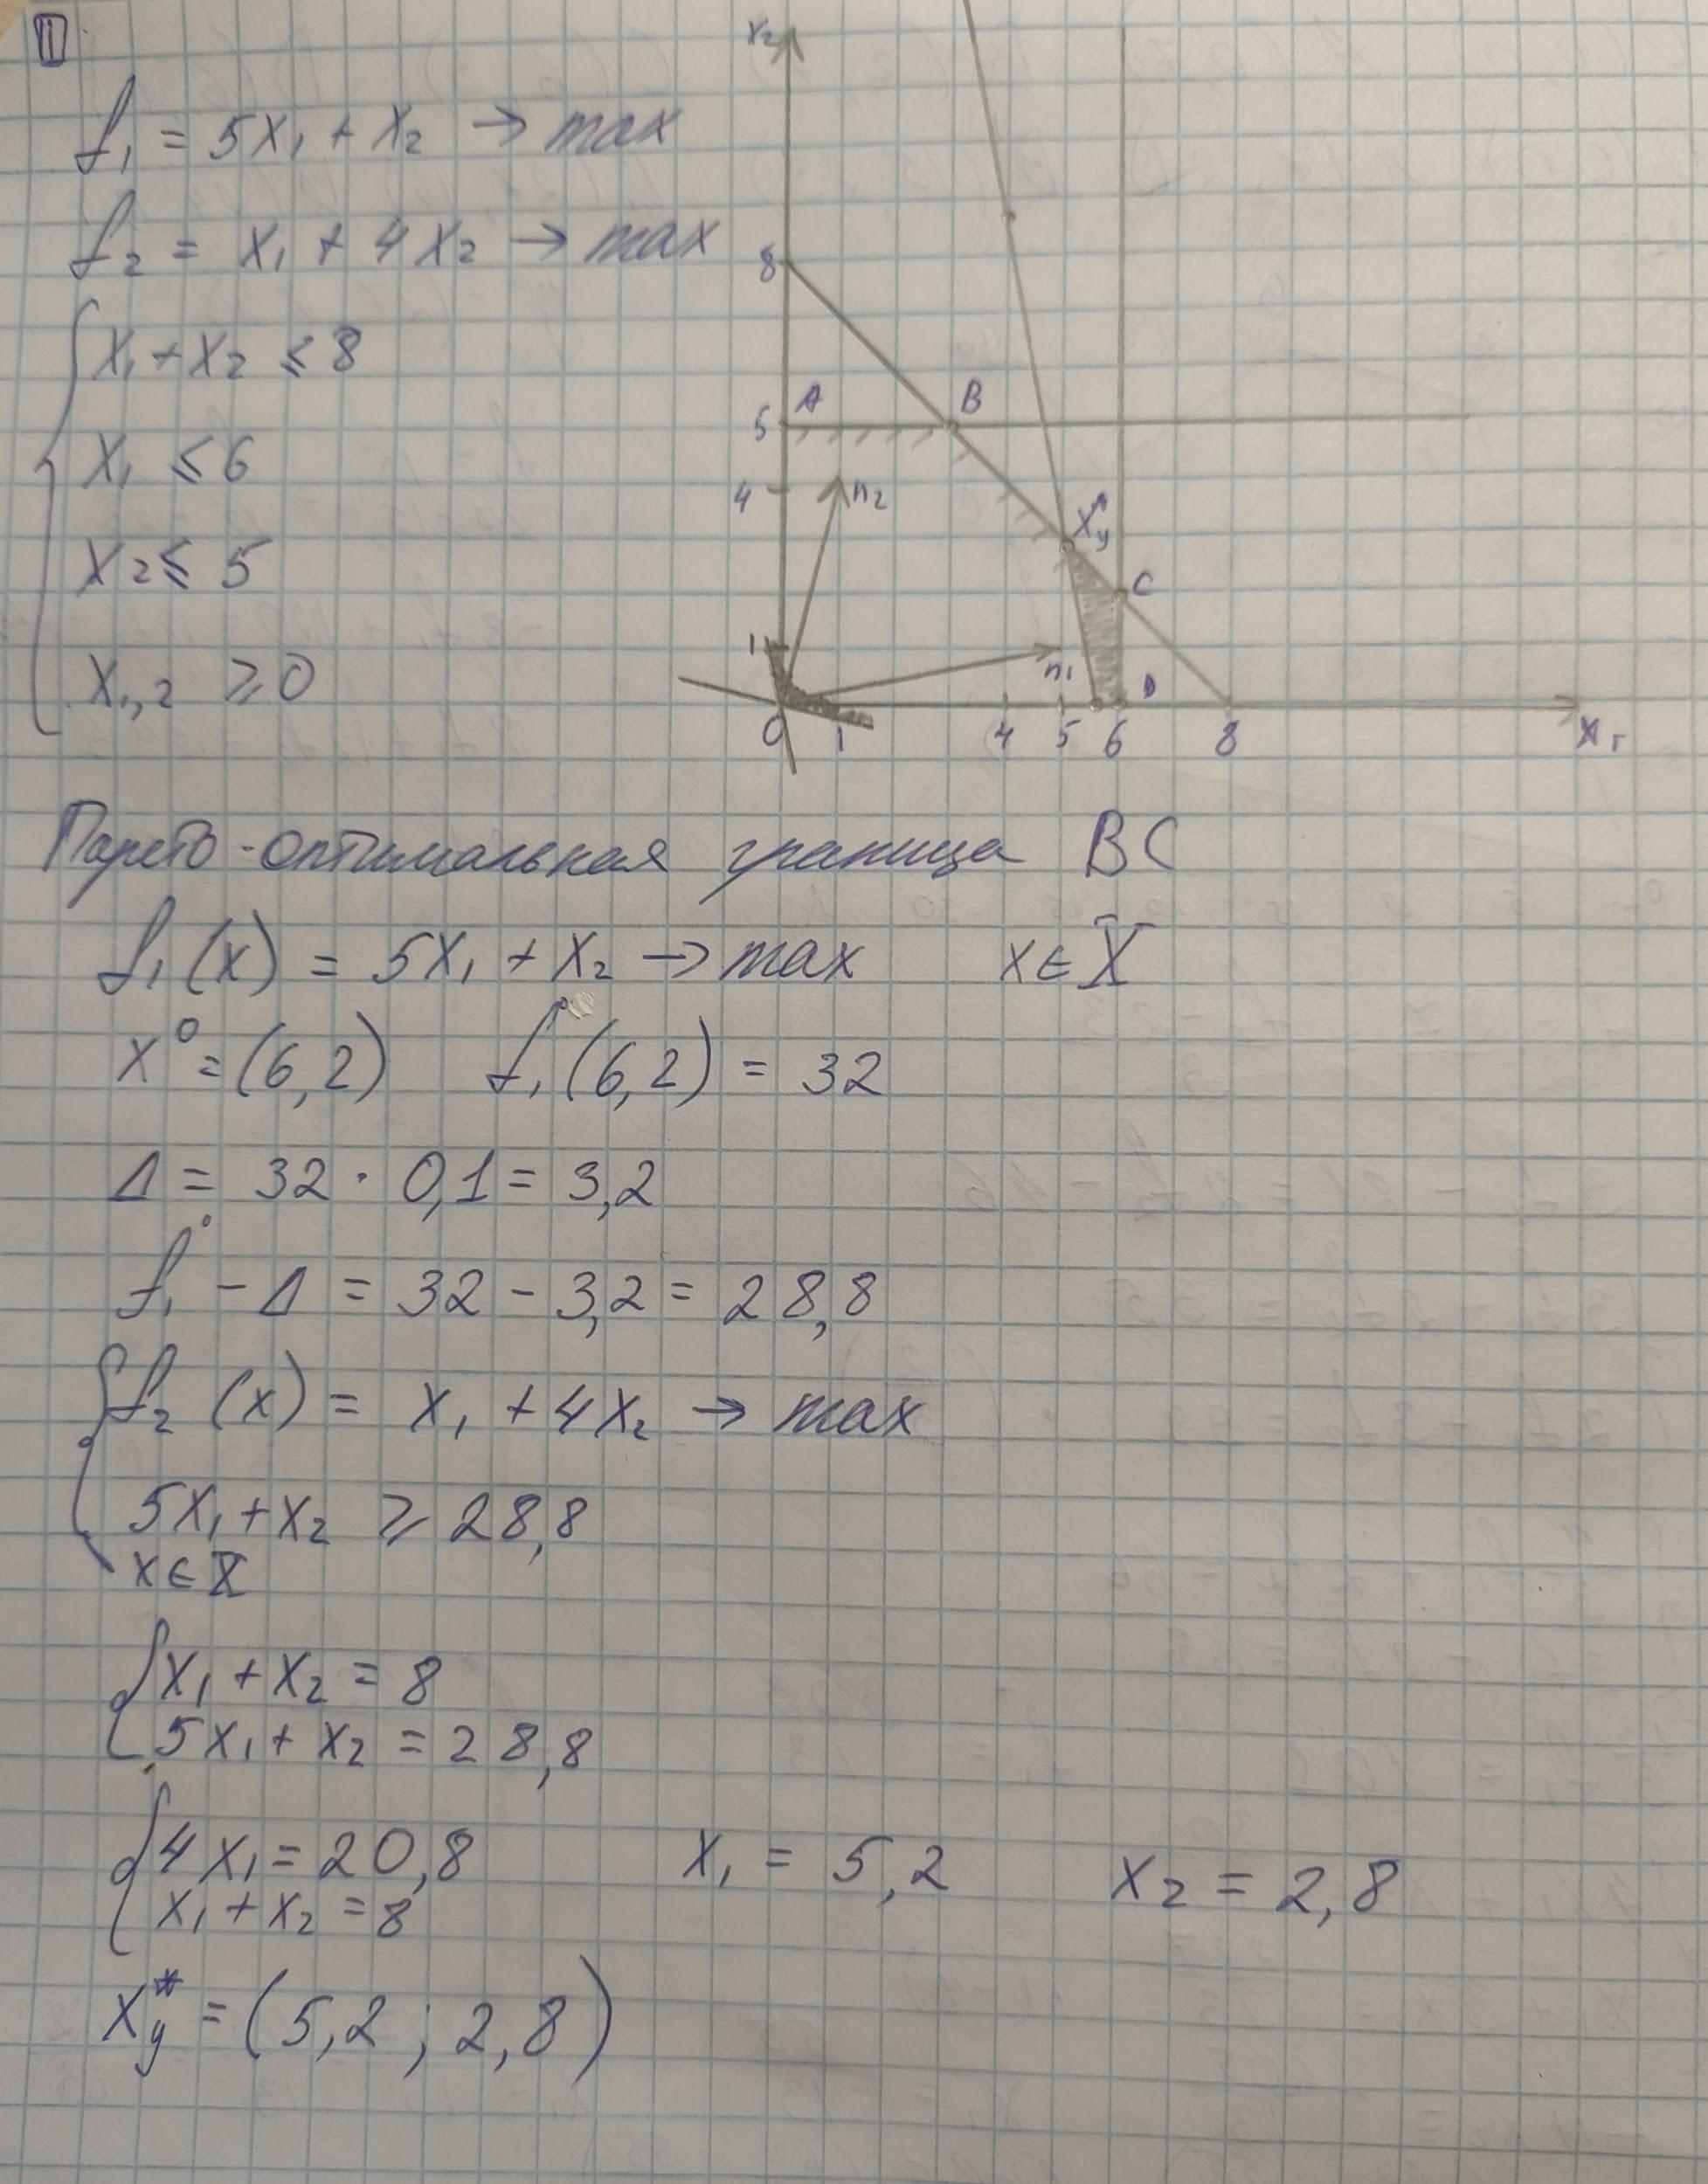 11
f₁ = 5x₁ + x₂ → max
f₂ = x₁ + 4x₂ → max
x₁ + x₂ ≤ 8
x₁ ≤ 6
x₂ ≤ 5
x₁,₂ ≥ 0
x₂
8
5 A B
4 n₂
x*у
C
1 n₁ D
0 1 4 5 6 8 x₁
Парето-оптимальная граница BC
f₁(x) = 5x₁ + x₂ → max x ∈ X
x⁰ = (6,2) f₁⁰(6,2) = 32
Δ = 32 · 0,1 = 3,2
f₁⁰ - Δ = 32 - 3,2 = 28,8
f₂(x) = x₁ + 4x₂ → max
5x₁ + x₂ ≥ 28,8
x ∈ X
x₁ + x₂ = 8
5x₁ + x₂ = 28,8
4x₁ = 20,8 x₁ = 5,2 x₂ = 2,8
x₁ + x₂ = 8
x*у = (5,2 ; 2,8)